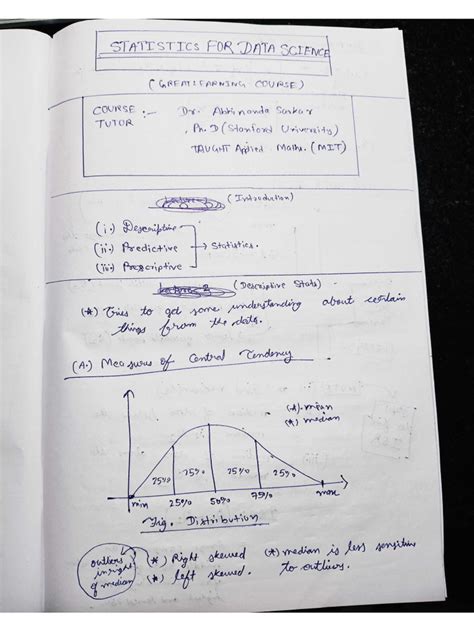 STATISTICS FOR DATA SCIENCE
(GREATLEARNING COURSE)
COURSE TUTOR :- Dr. Abhinanda Sarkar
, Ph.D (Stanford University)
TAUGHT Applied Maths. (MIT)
(Introduction)
(i.) Descriptive
(ii.) Predictive → Statistics.
(iii) Prescriptive
(Descriptive Stats)
(*) Tries to get some understanding about certain
things from the data.
(A.) Measures of Central Tendency
(*) mean
(*) median
25% 25% 25% 25%
min 25% 50% 75% max
Fig. Distribution
outliers in right of median
(*) Right skewed (*) median is less sensitive
(*) left skewed. to outliers.